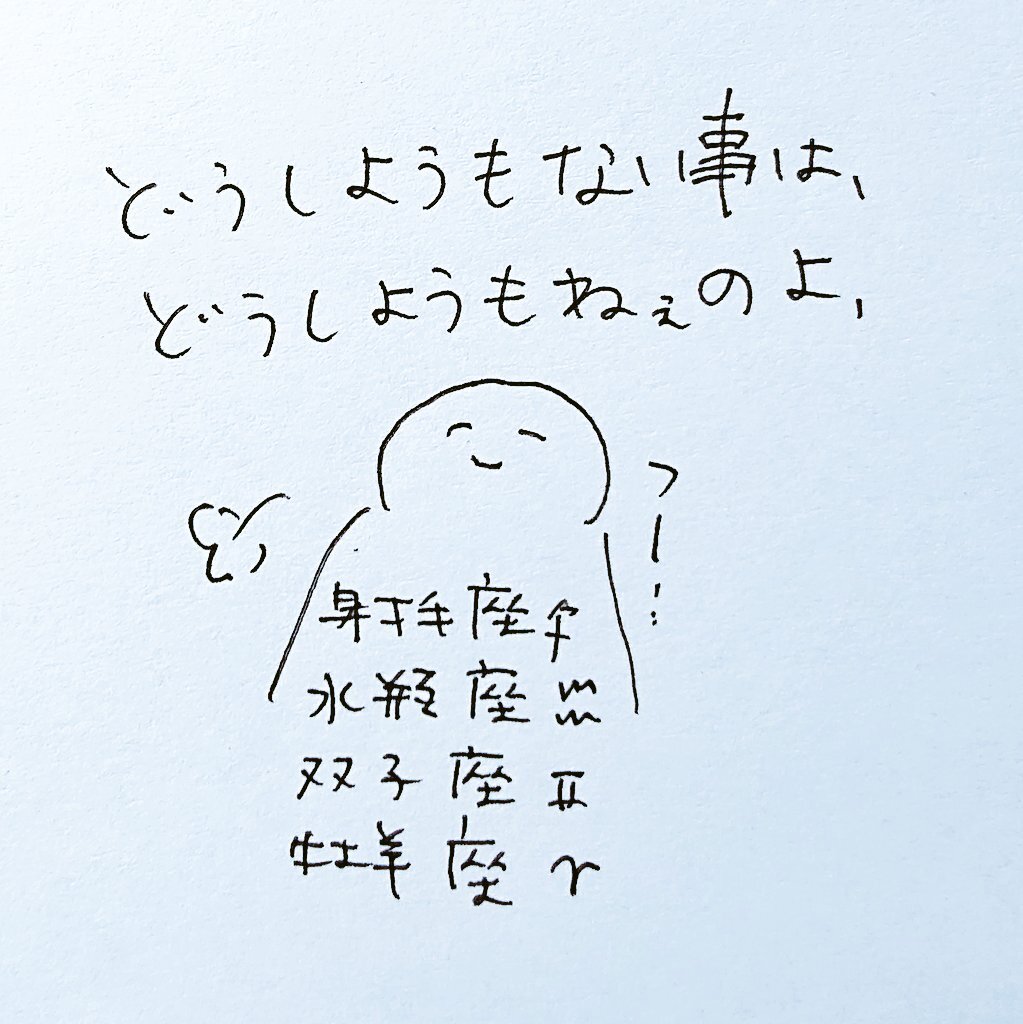 どうしようもない事は、
どうしようもねぇのよ、
射手座♐
水瓶座♒
双子座♊
牡羊座♈